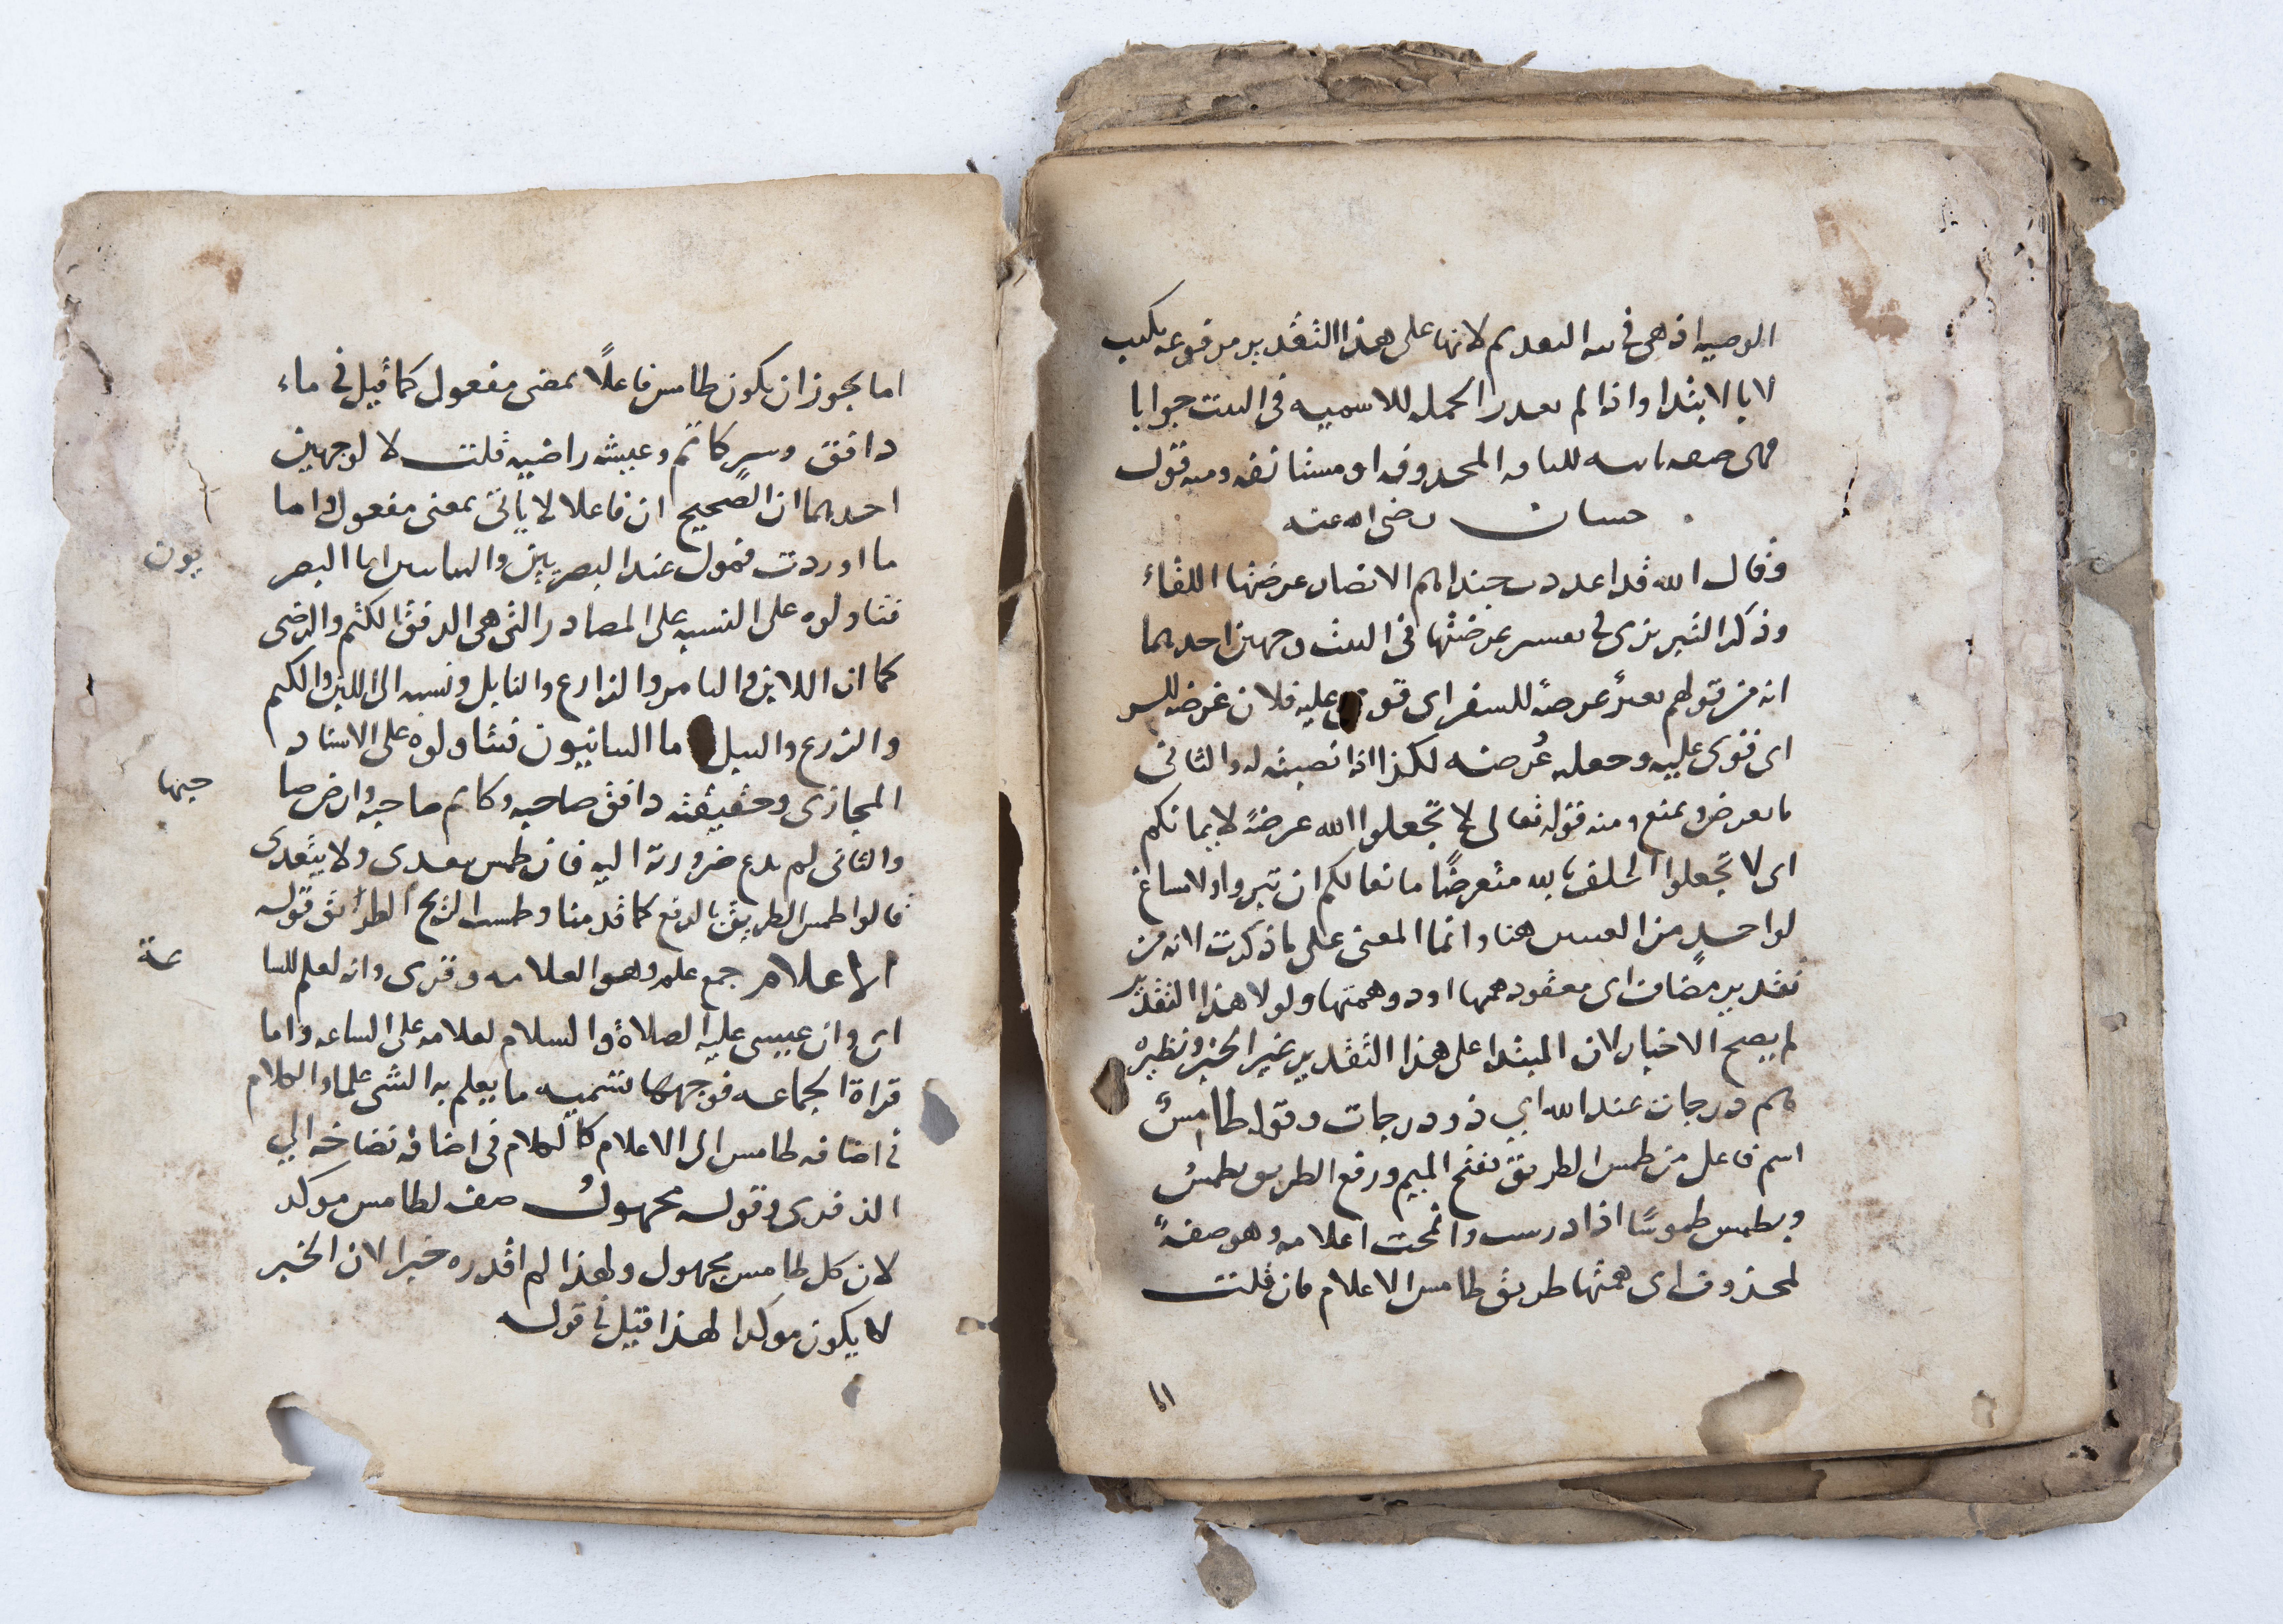 الوصيه اذ هى فى نيه التقديم لانها على هذا التقدير مرفوعه بكتب
لا بالابتدا واذا لم تقدر الجمله الاسميه فى البيت جوابا
فهى صفه ثانيه للناقه المحذوفه او مستانفه ومنه قول
حسان رضى الله عنه
وقال الله قد اعددت جندا هم الانصار عرضتها اللقاء
وذكر التبريزى فى تفسير عرضتها فى البيت وجهين احدهما
انه من قولهم بعيرٌ عرضةً للسفر اى قوى عليه فلان عرضه للسر
اى قوى عليه وجعله عُرضه لكذا اذا نصبته له والثانى
ما يعرض ويمنع ومنه قوله تعالى ولا تجعلوا الله عرضةً لايمانكم
اى لا تجعلوا الحلف بالله متعرضًا مانعا لكم ان تبروا ولا مساغ
لواحدٍ من المعنيين هنا وانما المعنى على ما ذكرت الا انه من
تقدير مضاف اى معقود همها او ذو همتها ولولا هذا التقدير
لم يصح الاخبار لان المبتدا على هذا التقدير غير الخبر ونظيره
هم درجات عند الله اي ذوو درجات وقوله طامسٌ
اسم فاعل من طمس الطريق بفتح الميم ورفع الطريق يطمسُ
ويطمس طموسًا اذا درست وانمحت اعلامه وهو صفةٌ
لمحذوف اى همتها طريق طامس الاعلام فان قلت
١١
اما يجوز ان يكون طامس فاعلاً بمعنى مفعول كما قيل فى ماء
دافق وسرٍ كاتم وعيشه راضيه قلت لا لوجهين
احدهما ان الصحيح ان فاعلا لا ياتى بمعنى مفعول واما
ما اوردت فمول عند البصريين والبيانيين اما البصر
يون
فتاولوه على النسبه على المصادر التى هى الدفق الكتم والرضى
كما ان اللابن والتامر والزارع والنابل ونسبه الى اللبن والكم
والزرع والنبل ما البيانيون فتاولوه على الاسناد
المجازى وحقيقته دافق صاحبه وكاتم صاحبه وارض صا
حبها
والثانى لم يدع ضرورة اليه فان طمس يتعدى ولا يتعدى
قالوا طمس الطريق بالرفع كما قدمنا وطمست الريح الطريق قوله
الاعلام جمع علم وهو العلامه وقرى وانه لعلم للسا
عة
اى وان عيسى عليه الصلاة والسلام لعلامه على الساعه واما
قراة الجماعه فوجهها تسميه ما يعلم به الشى علما والكلام
فى اضافه طامس الى الاعلام كالكلام فى اضافه نضاخه الي
الذفرى وقوله مجهولُ صفه لطامس موكد
لان كل طامس مجهول ولهذا لم اقدره خبرا لان الخبر
لا يكون موكدا لهذا قيل فى قوله